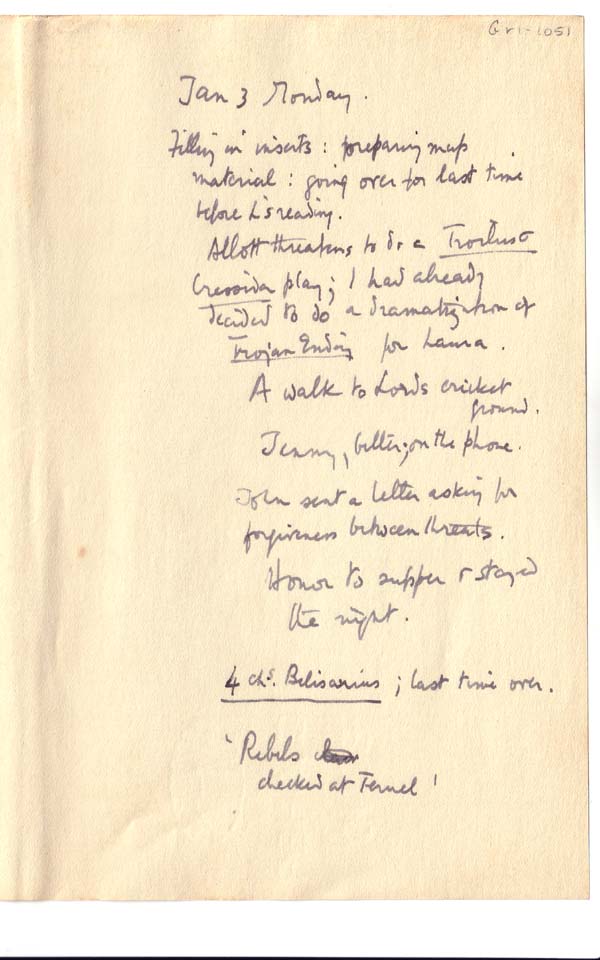 Gr1-1051
Jan 3 Monday.
Filling in inserts: preparing map
material: going over for last time
before L's reading.
Allott threatens to do a Troilus &
Cressida play; I had already
decided to do a dramatization of
Trojan Ending for Laura.
A walk to Lords cricket
ground.
Jenny, better; on the phone.
John sent a letter asking for
forgiveness between threats.
Honor to supper & stayed
the night.
4 chs. Belisarius; last time over.
'Rebels
checked at Teruel'